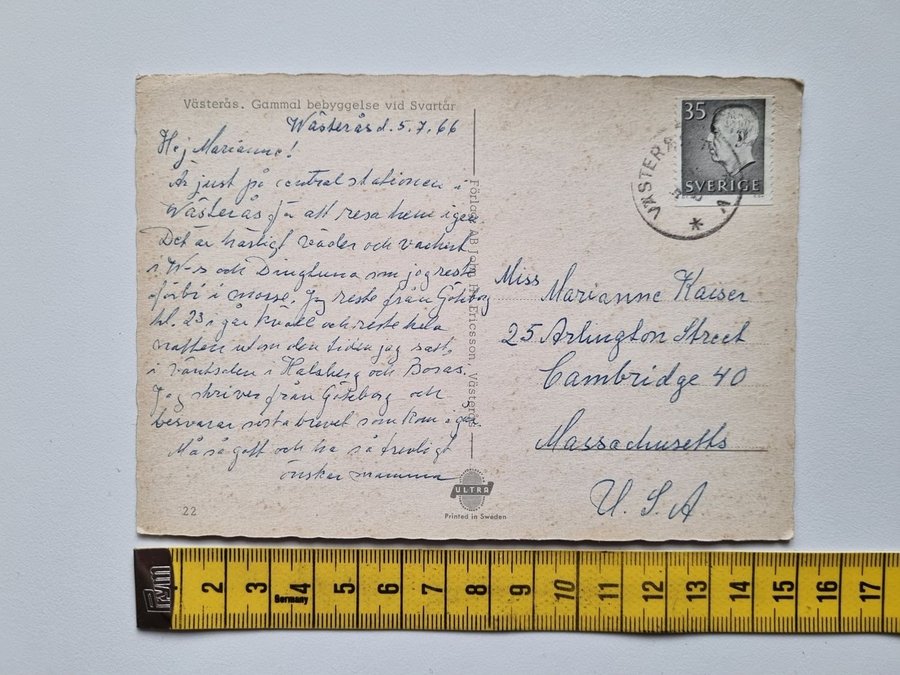 Västerås. Gammal bebyggelse vid Svartån
Västerås d. 5.7.66
Hej Marianne!
Är just på centralstationen i
Västerås för att resa hem igen
Det är härligt väder och vackert
i V-s och Dingtuna som jag reste
förbi i morse. Jag reste från Göteborg
kl. 23 i går kväll och reste hela
natten utom den tiden jag satt
i väntsalen i Halsberg och Borås.
Jag skriver från Göteborg och
besvarar sista brevet som kom igår.
Må så gott och ha så trevligt
önskar mamma
22
Förlag AB John Ericsson, Västerås
ULTRA
Printed in Sweden
35
SVERIGE
VÄSTERÅS
Miss Marianne Kaiser
25 Arlington Street
Cambridge 40
Massachusetts
U.S.A
2 3 4 5 6 7 8 9 10 11 12 13 14 15 16 17
Germany